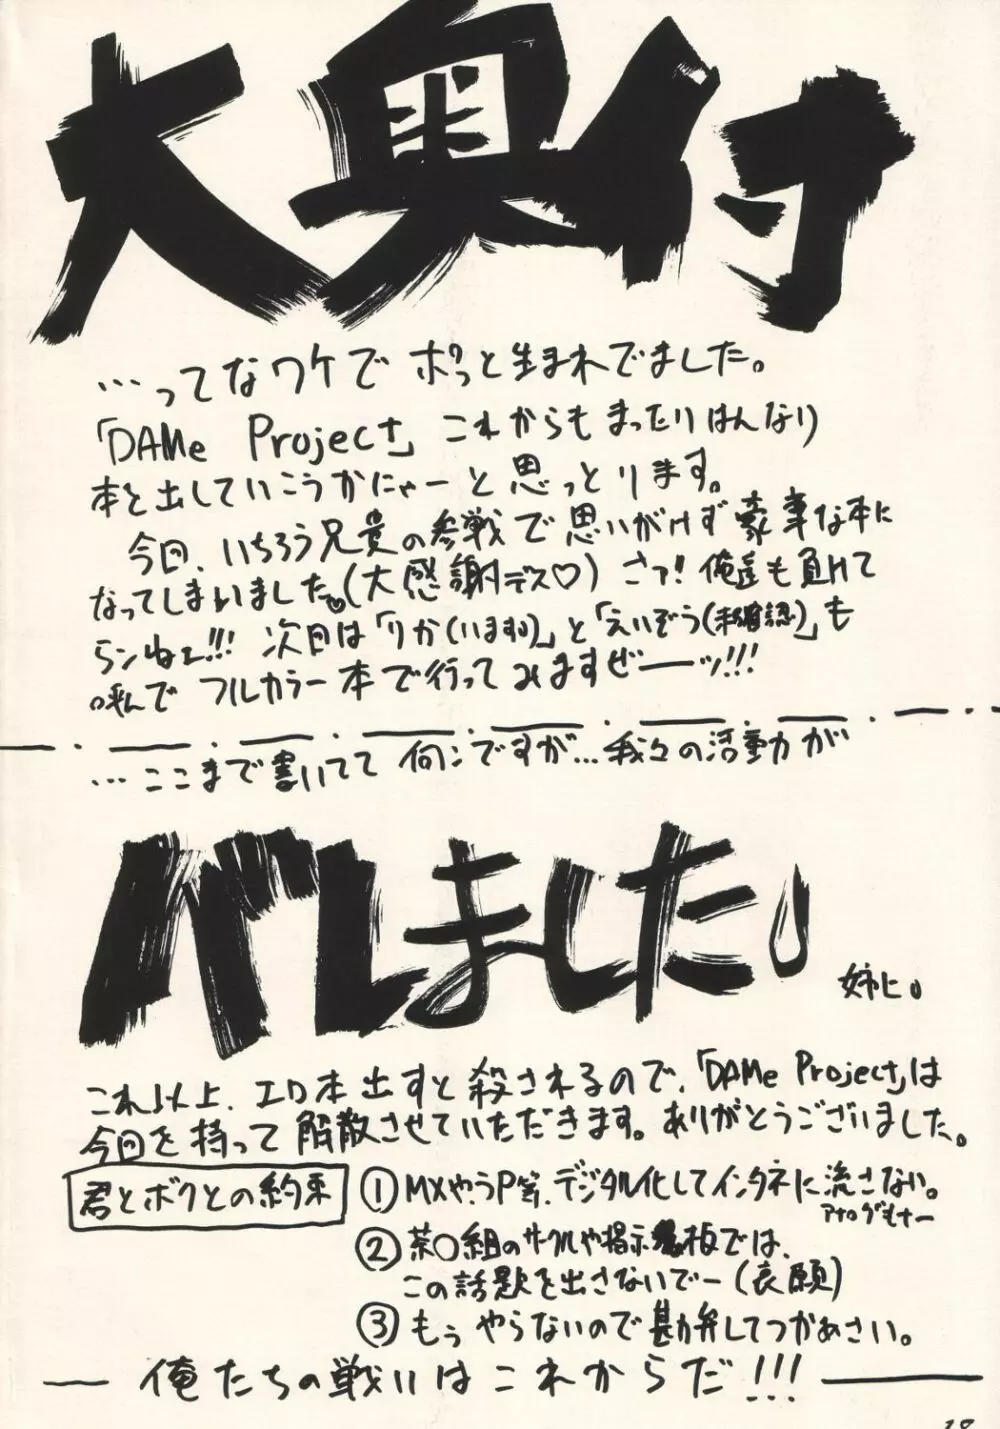 大奥付
…ってなワケで ポっと生まれでました。
「DAMe Project」 これからも まったりはんなり
本を出していこうかにゃーと思っとります。
今回、いちろう兄貴の参戦で思いがけず豪華な本に
なってしまいました♡(大感謝デス♡) さァ!俺達も負けて
らンねェ!!! 次回は「りか(います)」と「えいぞう(未確認)」も
呼んで フルカラー本で行ってみますぜーーッ!!!
…ここまで書いてて 何ンですが…我々の活動が
バレました。
姉に。
これ以上、エロ本出すと殺されるので、「DAMe Project」は
今回を持って解散させていただきます。ありがとうございました。
君とボクとの約束
①MXやうP等、デジタル化してインタネに流さない。
アナログもナー
②茶○組のサークルや掲示板では、
この話題を出さないでー(哀願)
③もう やらないので勘弁してつかぁさい。
俺たちの戦いはこれからだ!!!
18